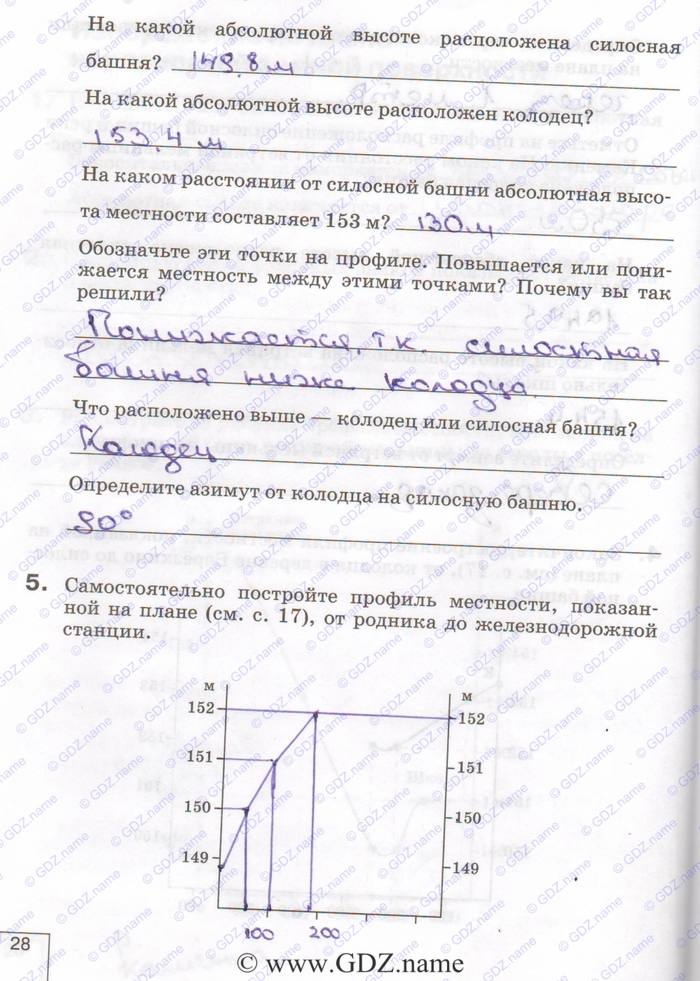 На какой абсолютной высоте расположена силосная
башня? 149,8 м
На какой абсолютной высоте расположен колодец?
153,4 м
На каком расстоянии от силосной башни абсолютная высо-
та местности составляет 153 м? 130м
Обозначьте эти точки на профиле. Повышается или пони-
жается местность между этими точками? Почему вы так
решили?
Понижается, т.к. силостная
башня ниже колодца
Что расположено выше — колодец или силосная башня?
Колодец
Определите азимут от колодца на силосную башню.
90°
5. Самостоятельно постройте профиль местности, показан-
ной на плане (см. с. 17), от родника до железнодорожной
станции.
м м
152 152
151 151
150 150
149 149
100 200
28
© www.GDZ.name